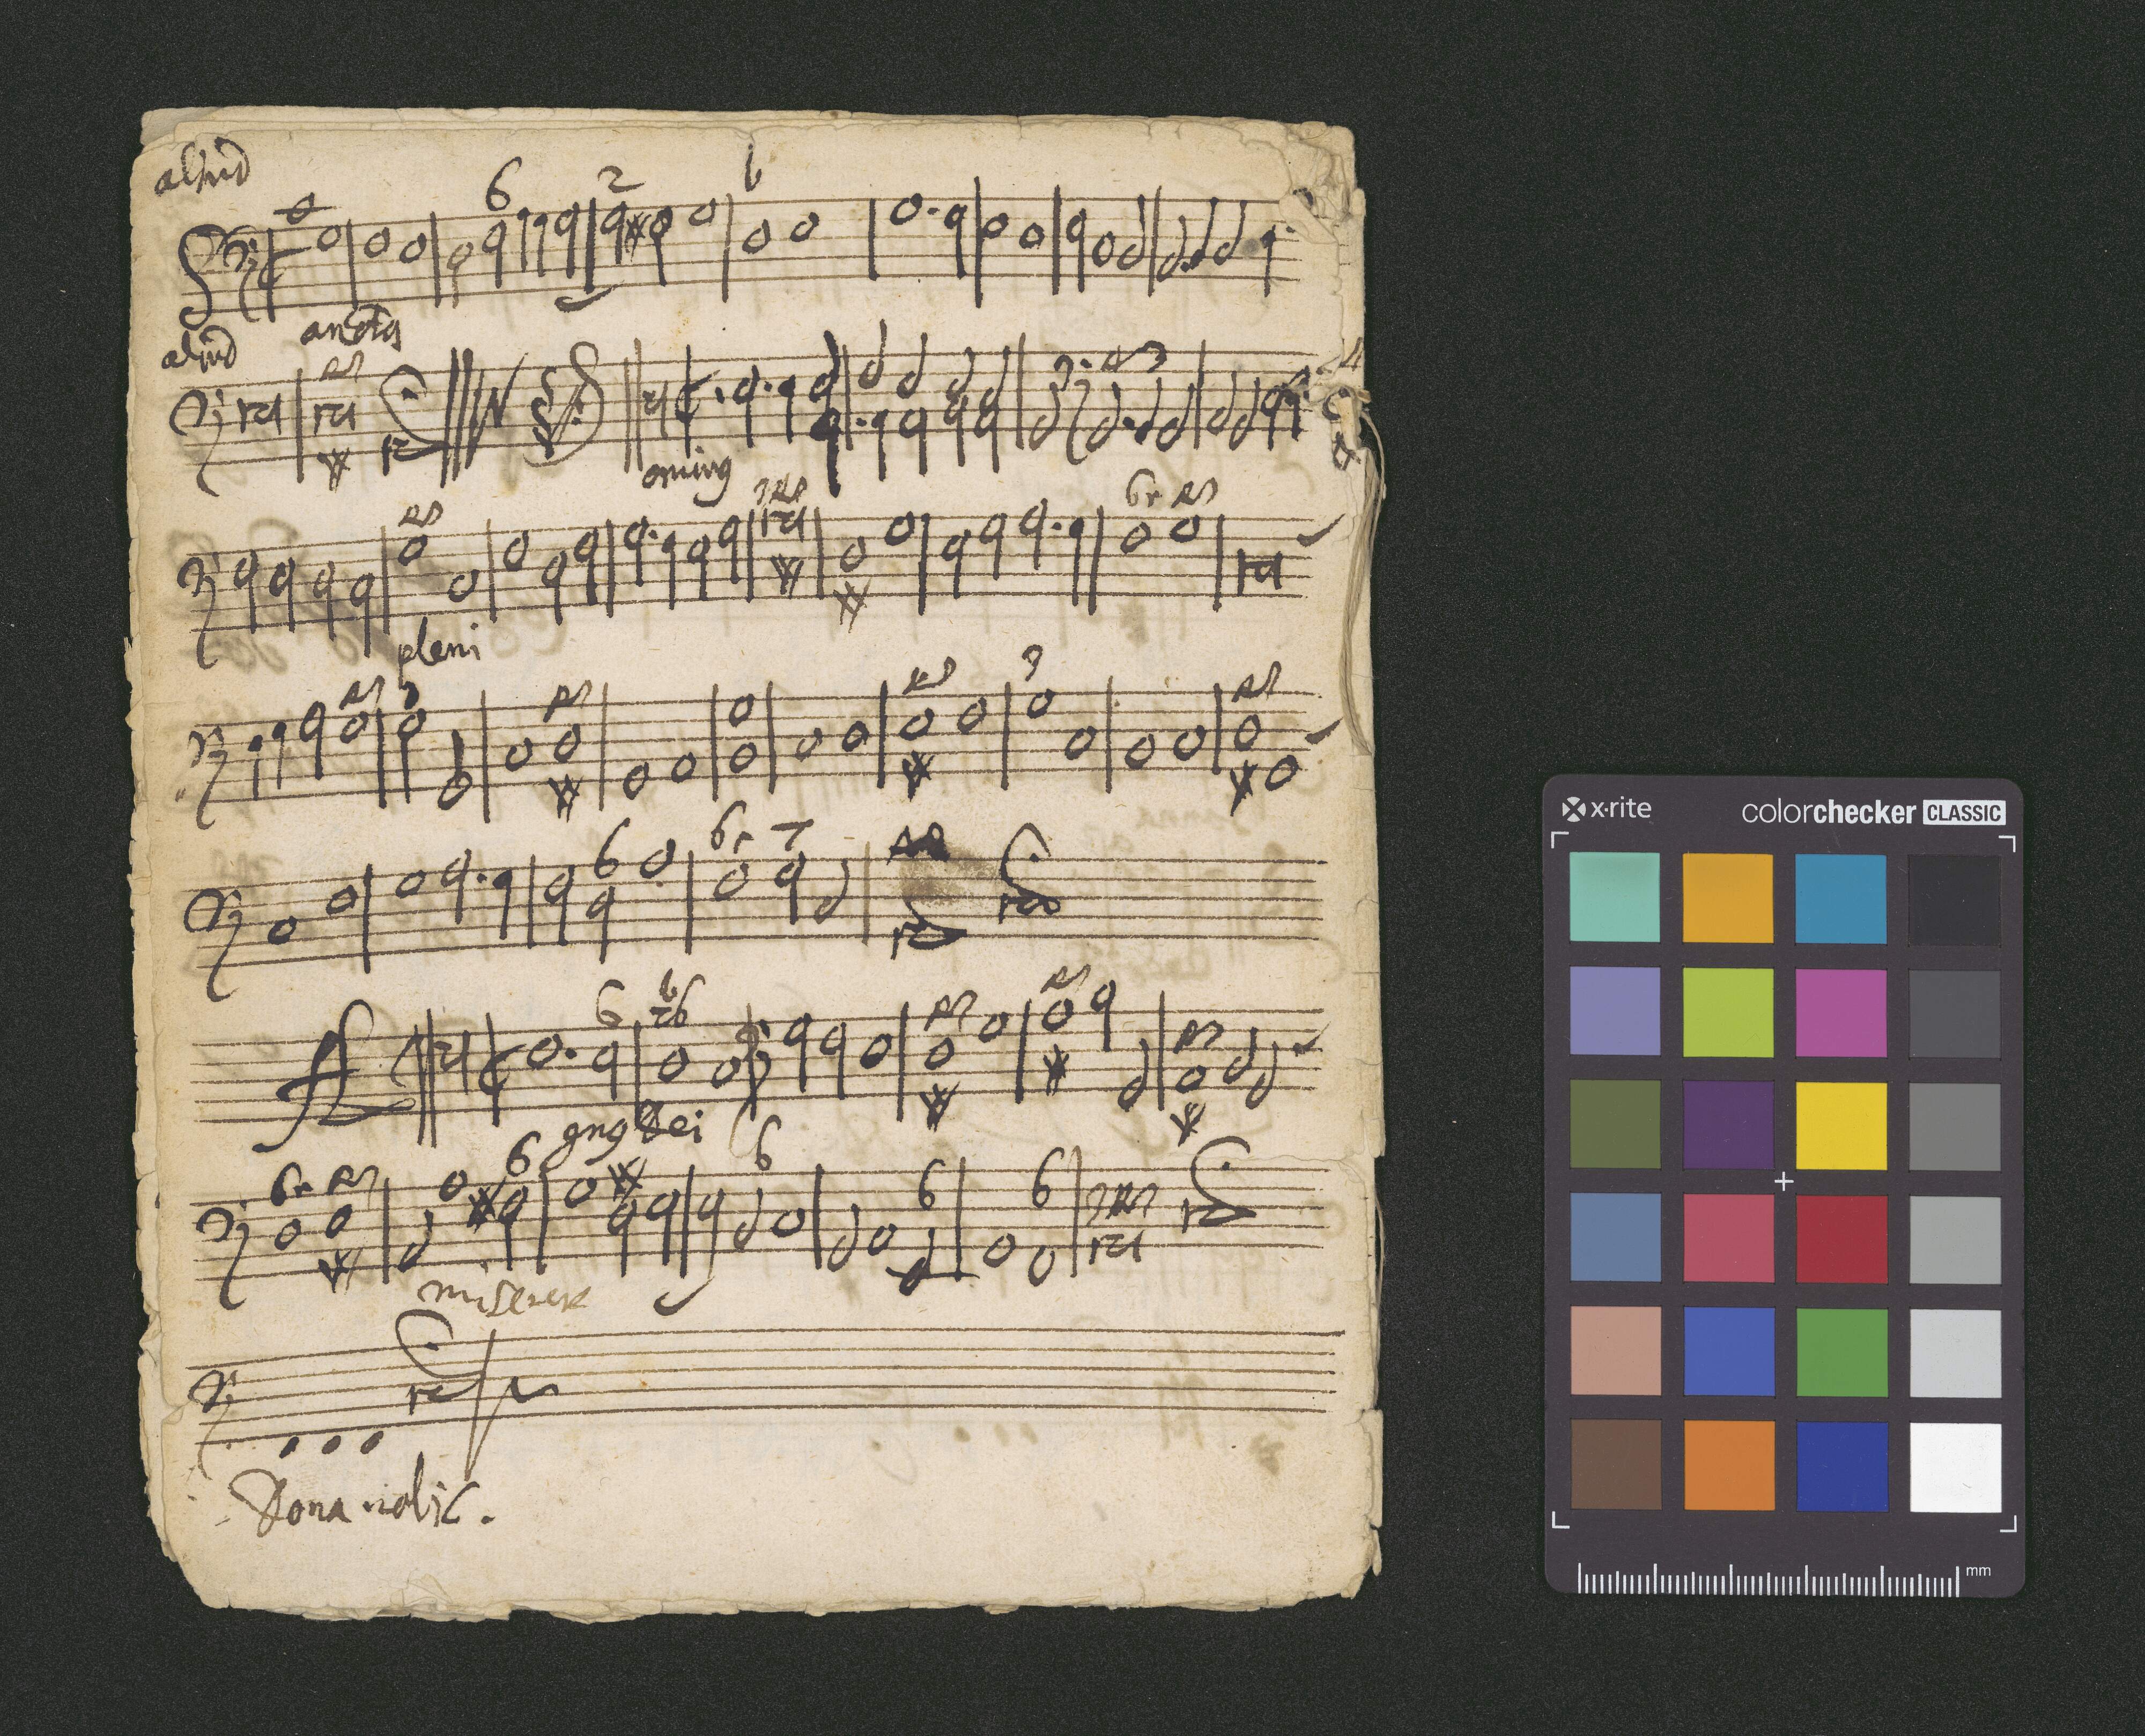 aliud
6 2 b
anctus
aliud
ominus
6
pleni
6 6 7
6 6
gnus Dei
6 6 6 6
miserere
Dona nobis.
x-rite
colorchecker CLASSIC
mm